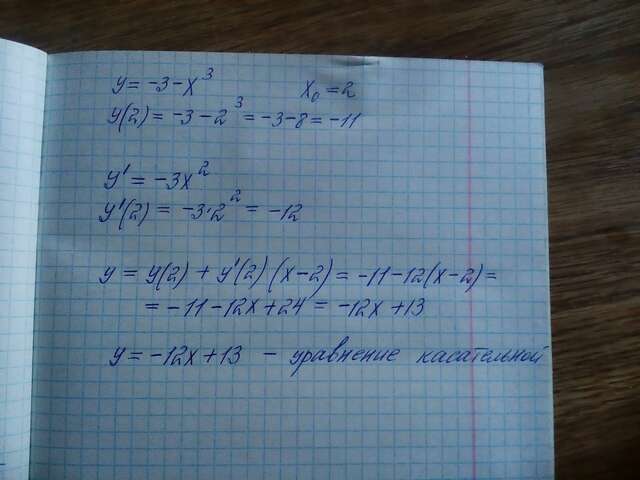 y = -3 - x³ x₀ = 2
y(2) = -3 - 2³ = -3 - 8 = -11
y' = -3x²
y'(2) = -3·2² = -12
y = y(2) + y'(2)(x-2) = -11-12(x-2) =
= -11-12x+24 = -12x+13
y = -12x+13 - уравнение касательной